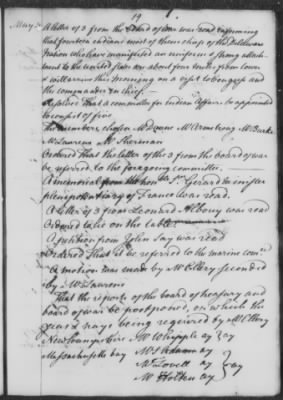 19
May 10 A letter of 3 from the board of war was read informing
that fourteen indians most of them chiefs of the Delaware
Nation who have manifested an uniform & strong attach-
ment to the united states are about four miles of town lower
& will arrive this evening on a visit to Congress and
the commander in chief.
Resolved That a committee for Indian Affairs be appointed
to consist of five
The members chosen Mr Duane Mr Armstrong Mr Burke
Mr Laurens Mr Sherman
Ordered That the letter of the 3 from the board of war
be referred to the foregoing committee.
A memorial from the hon Sr. Gerard minister
plenipotentiary of France was read.
A letter of 3 from Leonard was read
Ordered to lie on the table.
A petition from John Jay was read
Ordered That it be referred to the marine comee
A motion was made by Mr Ellery seconded
by Mr Laurens
That the reports of the board of treasury and
board of war be postponed, on which the
yeas & nays being required by Mr Ellery
New hampshire Mr Whipple ay } ay
Massachusetts bay Mr S Adams ay
Mr Lovell ay } ay
Mr Holten ay